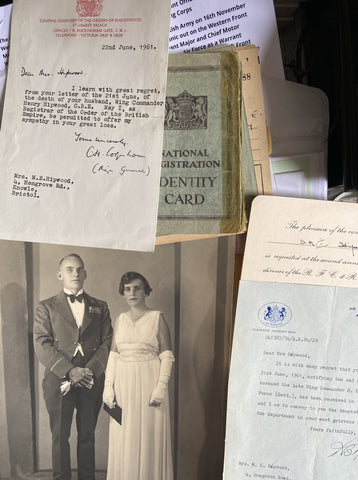 CENTRAL CHANCERY OF THE ORDERS OF KNIGHTHOOD
ST JAMES'S PALACE
OFFICES: 8, BUCKINGHAM GATE, S.W.1.
TELEPHONE: VICTORIA
22nd June, 1961.
Dear Mrs. Hipwood
I learn with great regret,
from your letter of the 21st June, of
the death of your husband, Wing Commander
Henry Hipwood, O.B.E. May I, as
Registrar of the Order of the British
Empire, be permitted to offer my
sympathy in your great loss.
Yours sincerely,
(Brig. General)
Mrs. W.E.Hipwood,
4, Hengrove Rd.,
Knowle,
Bristol.
ing Corps
itish Army on 16th November
out on the Western Front
ant Major and Chief Motor
Air Force as a Warrant
NATIONAL
REGISTRATION
IDENTITY
CARD
The pleasure of the
is requested at the second
dinner of the R.F.C. & R.
AIR
Dear Mrs Hipwood,
It is with deep regret that
21st June, 1961, notifying the
husband the late Wing Commander H.
Force (Retd.), has been received in
and I am to convey you the deepest
the Department in your most grievous
Yours faithfully,
Mrs. W. E. Hipwood,
4, Hengrove Road,